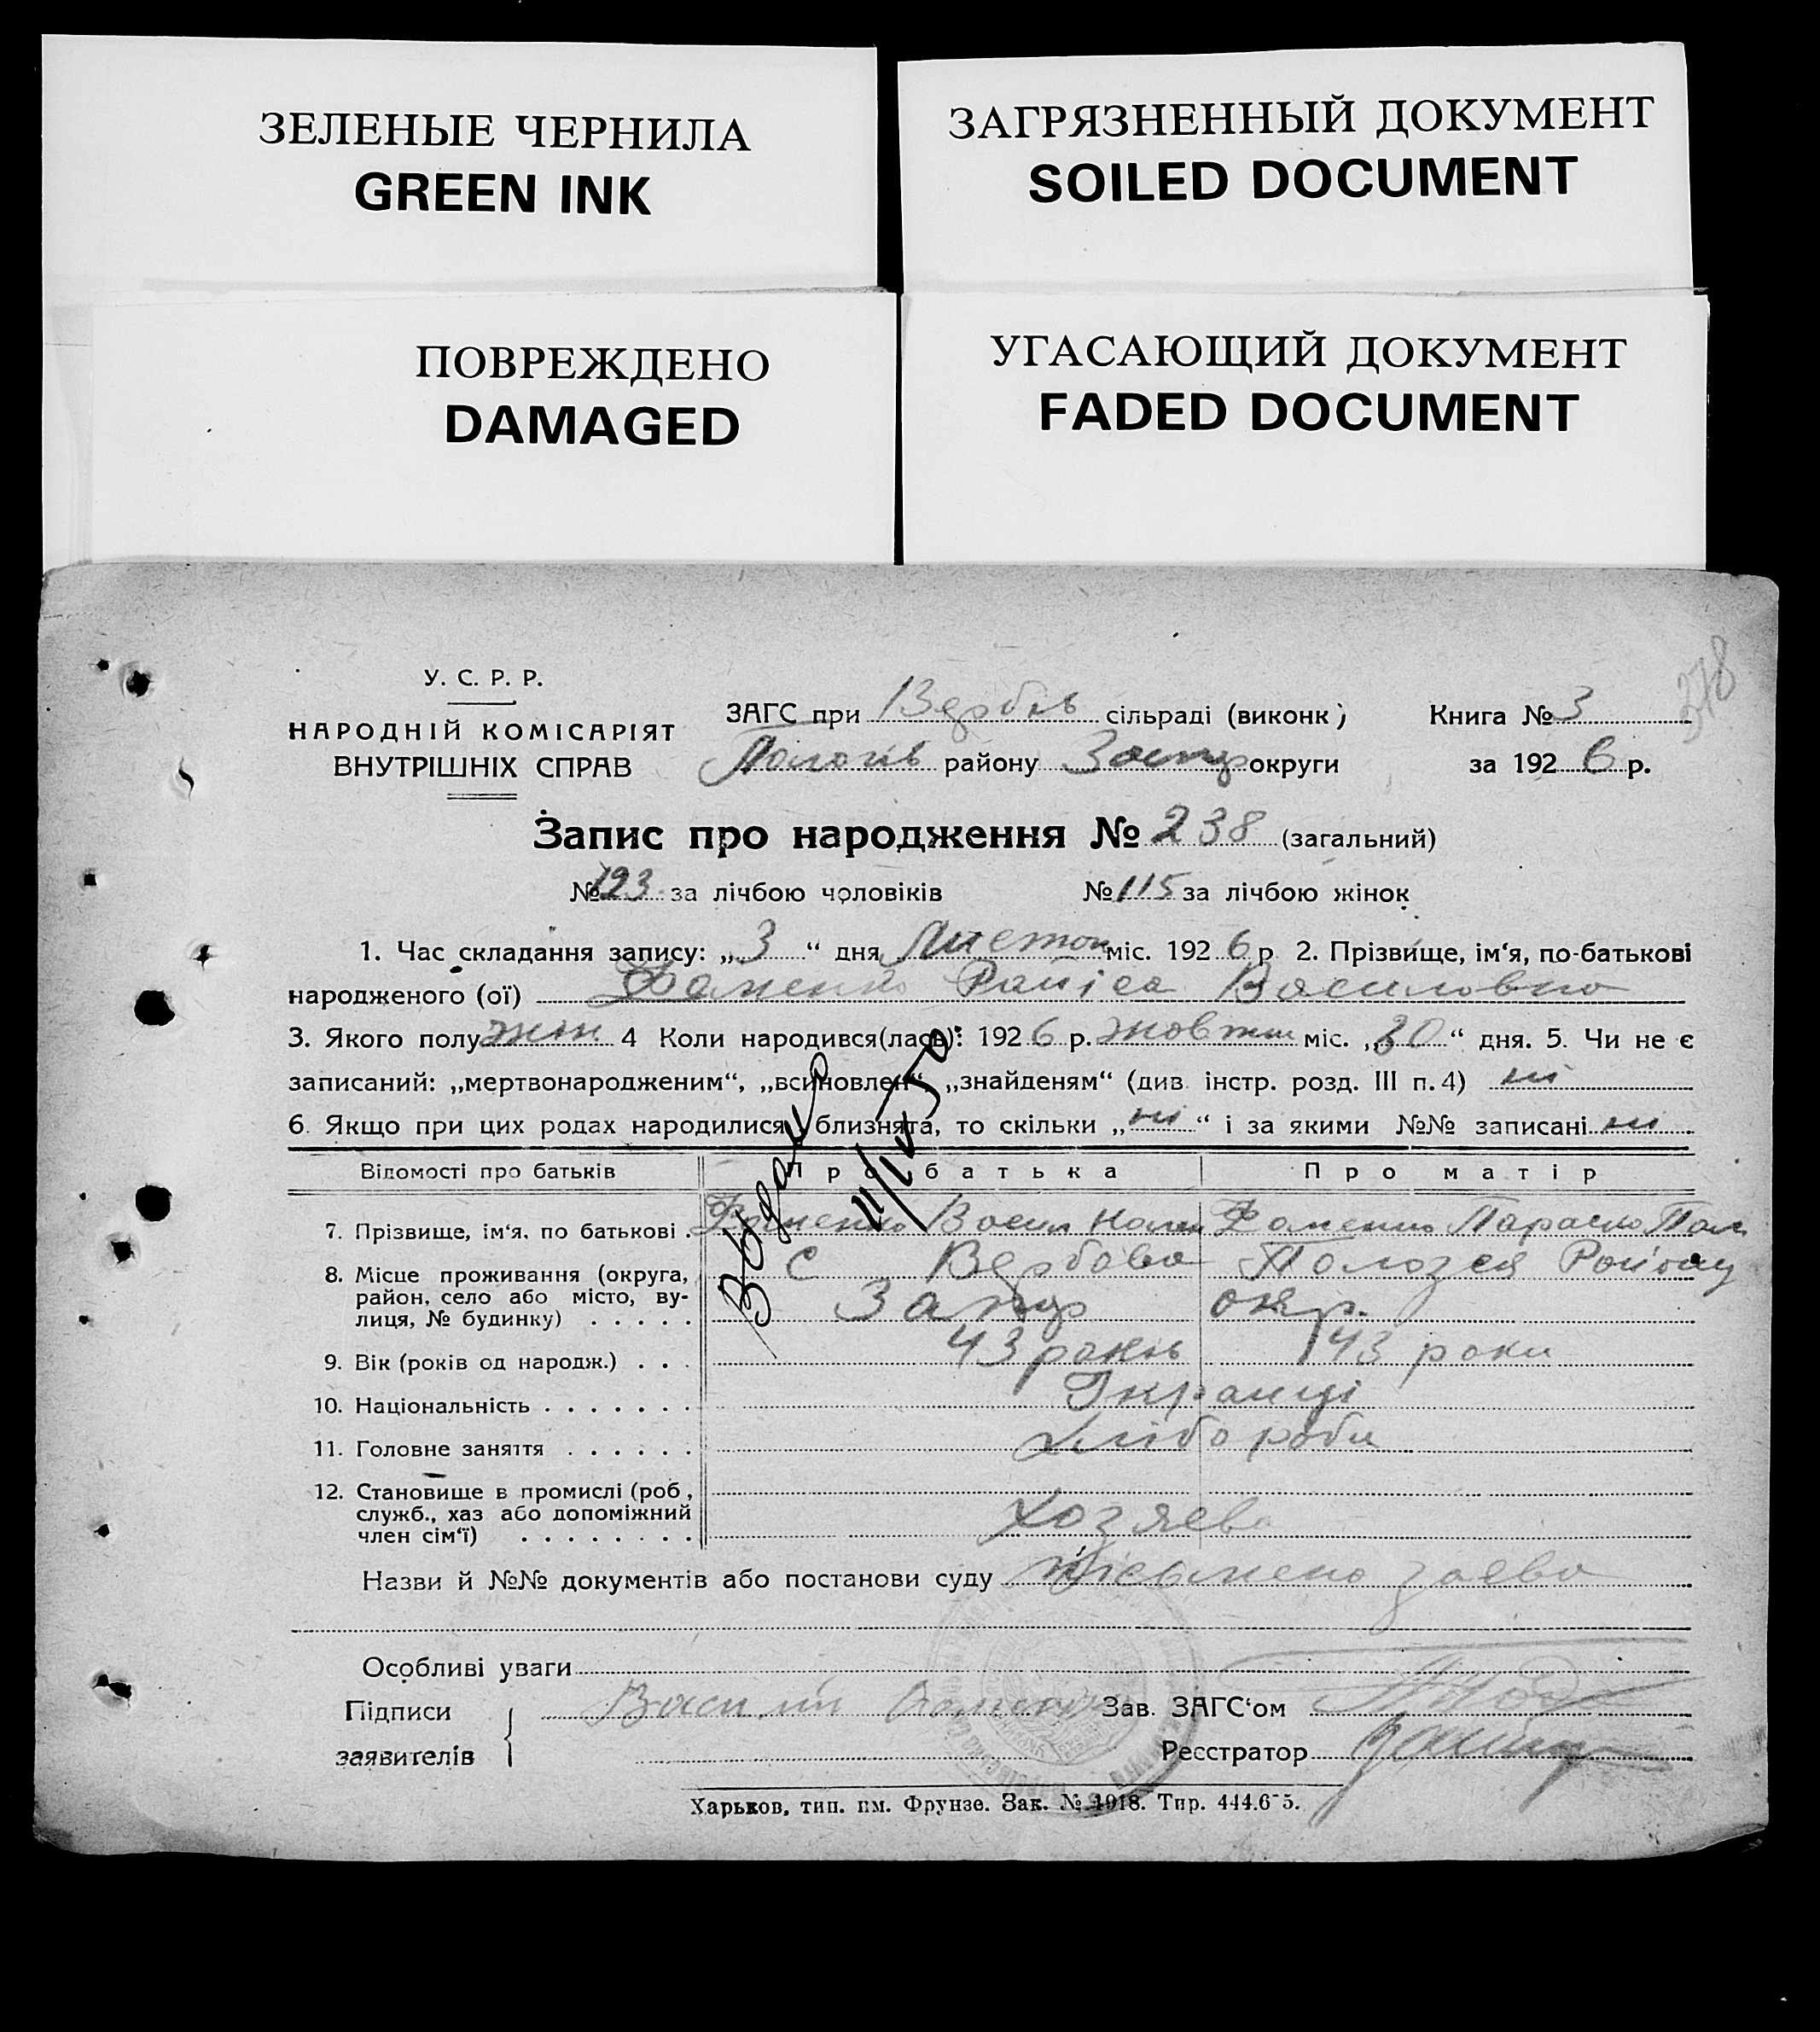 ЗЕЛЕНЫЕ ЧЕРНИЛА
GREEN INK
ЗАГРЯЗНЕННЫЙ ДОКУМЕНТ
SOILED DOCUMENT
ПОВРЕЖДЕНО
DAMAGED
УГАСАЮЩИЙ ДОКУМЕНТ
FADED DOCUMENT
378
У. С. Р. Р.
НАРОДНІЙ КОМІСАРІЯТ
ВНУТРІШНІХ СПРАВ
ЗАГС при Вербів сільраді (виконк) Книга № 3
Пологів району округи за 1926 р.
Запис про народження № 238 (загальний)
№ 123 за лічбою чоловіків № 115 за лічбою жінок
1. Час складання запису: „3“ дня Листоп міс. 1926 р 2. Прізвище, ім‘я, по-батькові
народженого (ої) Фоменко Раїса Василовна
3. Якого полу жін 4 Коли народився(лась): 1926 р. жовтня міс. „30“ дня. 5. Чи не є
записаний: „мертвонародженим“, „всиновлен“, „знайденям“ (див. інстр. розд. III п. 4) ні
6. Якщо при цих родах народилися близнята, то скільки „ні“ і за якими №№ записані ні
Відомості про батьків Про батька Про матір
7. Прізвище, ім‘я, по батькові . Фоменко Васил Фоменко Параска
8. Місце проживання (округа, С Вербова Району
район, село або місто, ву- Запор окр.
лиця, № будинку) . . . . .
9. Вік (років од народж.) . . . 43 років 43 роки
10. Національність . . . . . . . Українці
11. Головне заняття . . . . . . Хлібороби
12. Становище в промислі (роб.,
служб., хаз або допоміжний Хозяева
член сім‘ї) . . . . . . . .
Назви й №№ документів або постанови суду заява
Особливі уваги
Підписи Василий Фоменко Зав. ЗАГС‘ом
заявителів Реєстратор
Харьков, тип. им. Фрунзе. Зак. № 1918. Тир. 444.6-5.
Выдано
11/IV 50